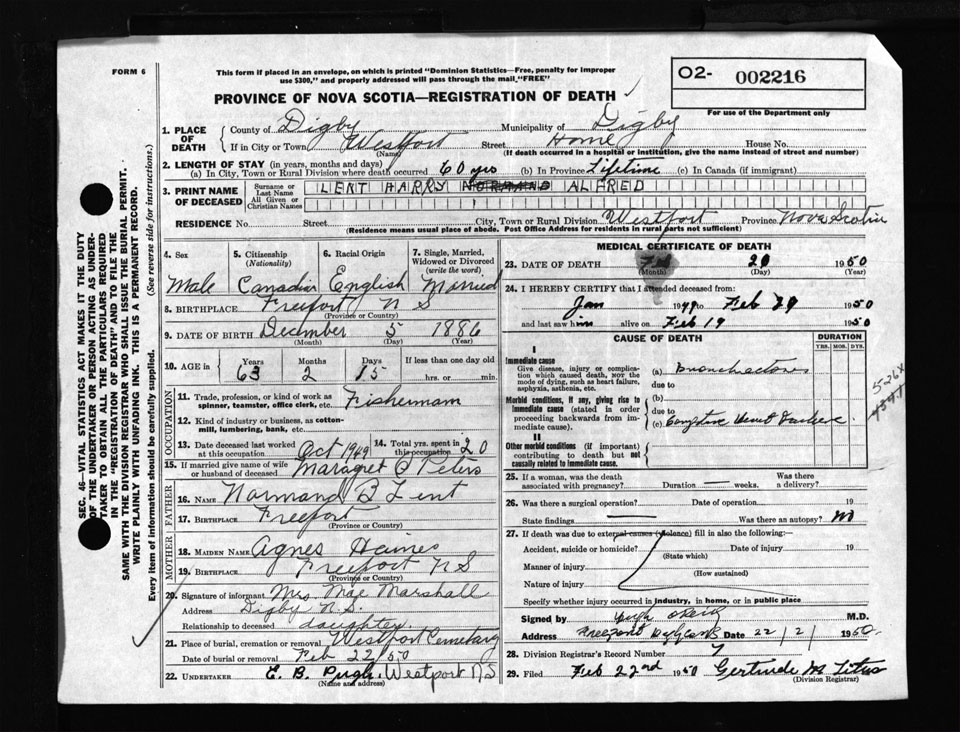 FORM 6
This form if placed in an envelope, on which is printed "Dominion Statistics—Free, penalty for improper
use $300," and properly addressed will pass through the mail "FREE"
O2- 002216
PROVINCE OF NOVA SCOTIA—REGISTRATION OF DEATH
For use of the Department only
1. PLACE OF DEATH
County of Digby Municipality of Digby
If in City or Town Westport Street Home House No.
(Name) (If death occurred in a hospital or institution, give the name instead of street and number)
2. LENGTH OF STAY (in years, months and days)
(a) In City, Town or Rural Division where death occurred 60 yrs (b) In Province Lifetime (c) In Canada (if immigrant)
3. PRINT NAME OF DECEASED
Surname or Last Name LENT HARRY NORMAND ALFRED
All Given or Christian Names
RESIDENCE No. Street City, Town or Rural Division Westport Province Nova Scotia
(Residence means usual place of abode. Post Office Address for residents in rural parts not sufficient)
4. Sex 5. Citizenship (Nationality) 6. Racial Origin 7. Single, Married, Widowed or Divorced (write the word)
Male Canadian English Married
8. BIRTHPLACE Freeport N S
(Province or Country)
9. DATE OF BIRTH December 5 1886
(Month) (Day) (Year)
10. AGE in Years Months Days If less than one day old
63 2 15 hrs. or min.
OCCUPATION
11. Trade, profession or kind of work as spinner, teamster, office clerk, etc. Fisherman
12. Kind of industry or business, as cotton-mill, lumbering, bank, etc.
13. Date deceased last worked at this occupation Oct 1949 14. Total yrs. spent in this occupation 20
15. If married give name of wife or husband of deceased Maragret Peters
FATHER
16. NAME Normand B Lent
17. BIRTHPLACE Freeport
(Province or Country)
MOTHER
18. MAIDEN NAME Agnes Haines
19. BIRTHPLACE Freeport N S
(Province or Country)
20. Signature of informant Mrs. Mae Marshall
Address Digby N.S.
Relationship to deceased daughter
21. Place of burial, cremation or removal Westport Cemetary
Date of burial or removal Feb 22/50
22. UNDERTAKER E. B. Pugh. Westport NS
(Name and address)
MEDICAL CERTIFICATE OF DEATH
23. DATE OF DEATH Feb 20 1950
(Month) (Day) (Year)
24. I HEREBY CERTIFY that I attended deceased from:
Jan 1949 to Feb 19 1950
and last saw him alive on Feb 19 1950
CAUSE OF DEATH DURATION
YRS. MOS. DYS.
I
Immediate cause
Give disease, injury or complication which caused death, NOT the mode of dying, such as heart failure, asphyxia, asthenia, etc.
(a)
due to
Morbid conditions, if any, giving rise to immediate cause (stated in order proceeding backwards from immediate cause).
(b)
due to
(c) Heart
II
Other morbid conditions (if important) contributing to death but not causally related to immediate cause.
25. If a woman, was the death associated with pregnancy? Duration weeks. Was there a delivery?
26. Was there a surgical operation? Date of operation 19
State findings Was there an autopsy? No
27. If death was due to external causes (violence) fill in also the following:—
Accident, suicide or homicide? Date of injury 19
(State which)
Manner of injury
(How sustained)
Nature of injury
Specify whether injury occurred in industry, in home, or in public place
Signed by M.D.
Address Freeport Date 22/2/ 1950
28. Division Registrar's Record Number 7
29. Filed Feb 22nd 1950 Gertrude M Titus
(Division Registrar)
SEC. 46—VITAL STATISTICS ACT MAKES IT THE DUTY
OF THE UNDERTAKER OR PERSON ACTING AS UNDERTAKER TO OBTAIN ALL THE PARTICULARS REQUIRED
IN THE "REGISTRATION OF DEATH" AND TO FILE THE
SAME WITH THE DIVISION REGISTRAR WHO SHALL ISSUE THE BURIAL PERMIT.
WRITE PLAINLY WITH UNFADING INK. THIS IS A PERMANENT RECORD.
Every item of information should be carefully supplied. (See reverse side for instructions.)